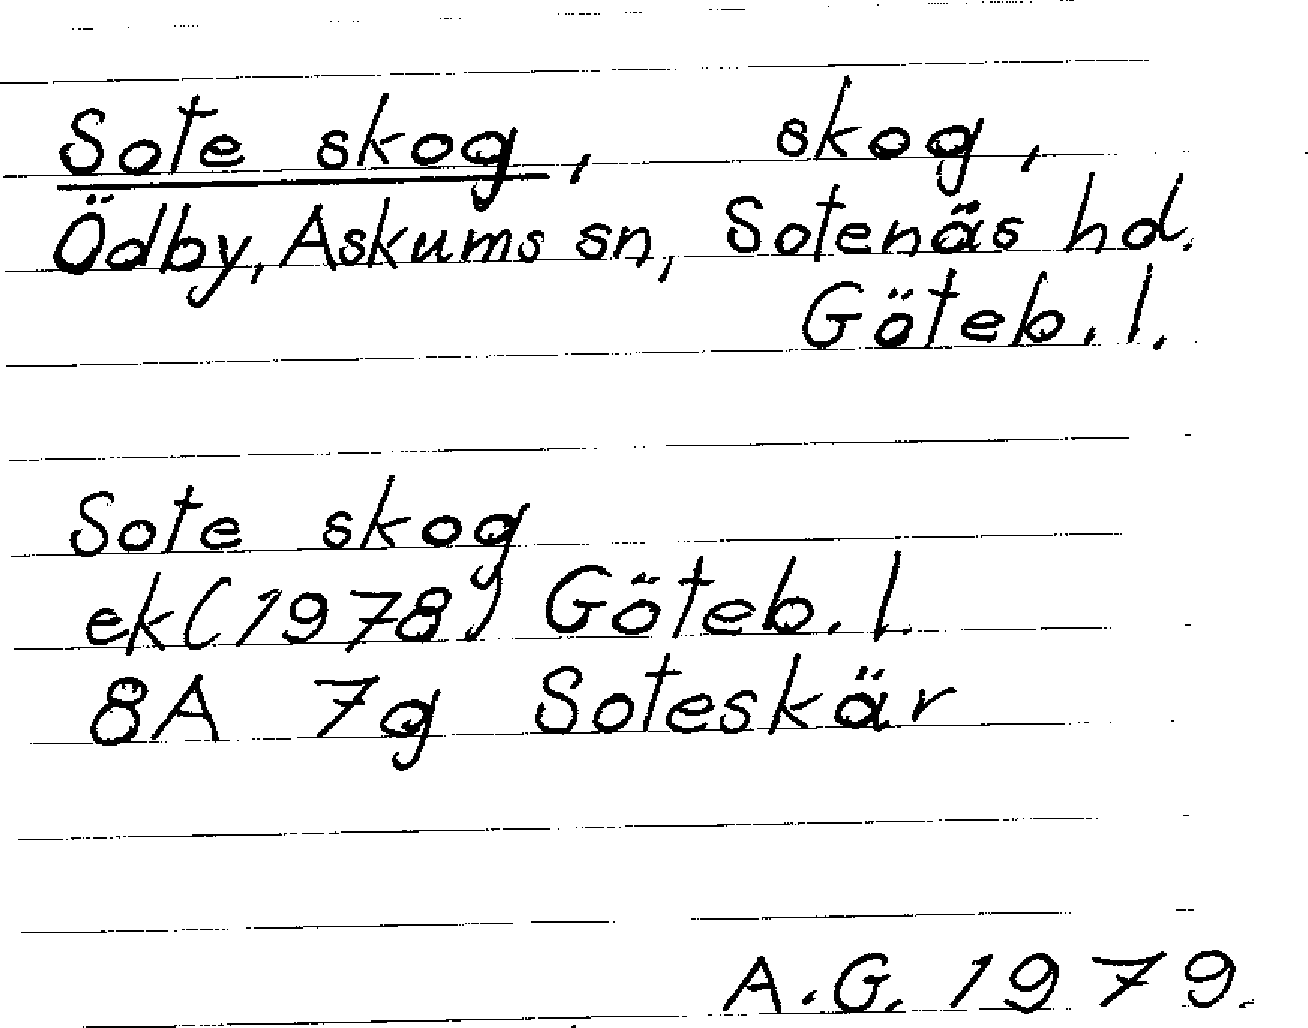 Sote skog, skog,
Ödby, Askums sn, Sotenäs hd.
Göteb. l.
Sote skog
ek (1978) Göteb. l.
8A 7g Soteskär
A.G. 1979.